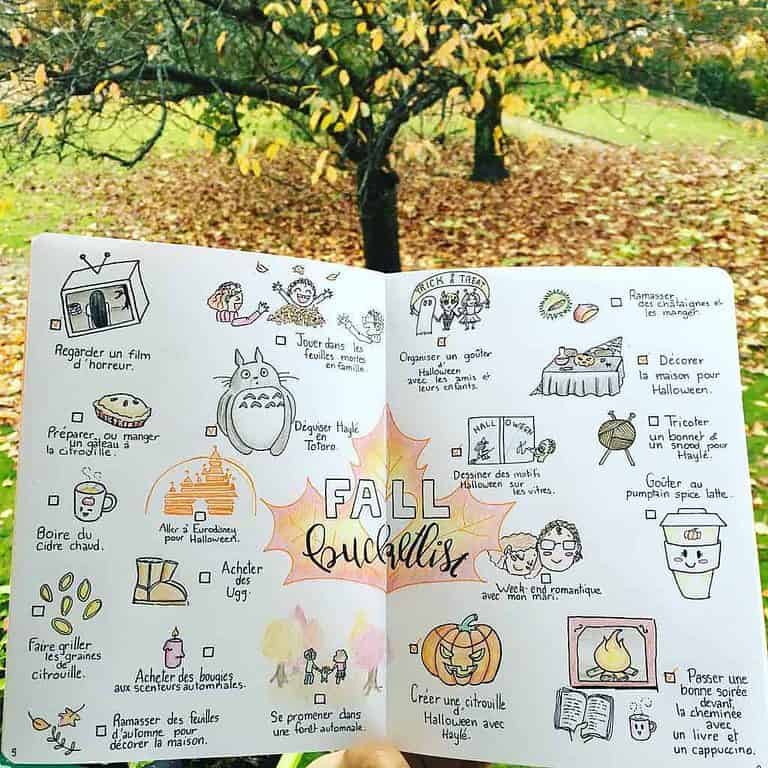 Regarder un film
d'horreur.
Jouer dans les
feuilles mortes
en famille.
Préparer ou manger
un gâteau à
la citrouille.
Déguiser Haylé
en
Totoro.
Boire du
cidre chaud.
Aller à Eurodisney
pour Halloween.
Acheter
des
Ugg.
Faire griller
les graines
de
citrouille.
Acheter des bougies
aux senteurs automnales.
Ramasser des feuilles
d'automne pour
décorer la maison.
Se promener dans
une forêt automnale.
5
FALL
bucketlist
TRICK & TREAT
Organiser un goûter
d'Halloween
avec les amis et
leurs enfants.
Ramasser
des châtaignes et
les manger.
Décorer
la maison pour
Halloween.
HALLOWEEN
Dessiner des motifs
Halloween sur
les vitres.
Tricoter
un bonnet &
un snood pour
Haylé.
Goûter au
pumpkin spice latte.
Week-end romantique
avec mon mari.
Créer une citrouille
d'Halloween avec
Haylé.
Passer une
bonne soirée
devant
la cheminée
avec
un livre et
un cappuccino.